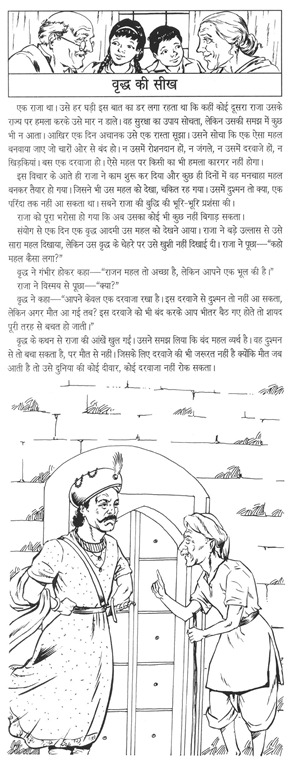 वृद्ध की सीख
एक राजा था। उसे हर घड़ी इस बात का डर लगा रहता था कि कहीं कोई दूसरा राजा उसके
राज्य पर हमला करके उसे मार न डाले। वह सुरक्षा का उपाय सोचता, लेकिन उसकी समझ में कुछ
भी न आता। आखिर एक दिन अचानक उसे एक रास्ता सूझा। उसने सोचा कि एक ऐसा महल
बनवाया जाए जो चारों ओर से बंद हो। न उसमें रोशनदान हों, न जंगले, न उसमें दरवाजे हों, न
खिड़कियां। बस एक दरवाजा हो। ऐसे महल पर किसी का भी हमला कारगर नहीं होगा।
इस विचार के आते ही राजा ने काम शुरू कर दिया और कुछ ही दिनों में वह मनचाहा महल
बनकर तैयार हो गया। जिसने भी उस महल को देखा, चकित रह गया। उसमें दुश्मन तो क्या, एक
परिंदा तक नहीं आ सकता था। सबने राजा की बुद्धि की भूरि-भूरि प्रशंसा की।
राजा को पूरा भरोसा हो गया कि अब उसका कोई भी कुछ नहीं बिगाड़ सकता।
संयोग से एक दिन एक वृद्ध आदमी उस महल को देखने आया। राजा ने बड़े उल्लास से उसे
सारा महल दिखाया, लेकिन उस वृद्ध के चेहरे पर उसे खुशी नहीं दिखाई दी। राजा ने पूछा—"कहो
महल कैसा लगा?"
वृद्ध ने गंभीर होकर कहा—"राजन महल तो अच्छा है, लेकिन आपने एक भूल की है।"
राजा ने विस्मय से पूछा—"क्या?"
वृद्ध ने कहा—"आपने केवल एक दरवाजा रखा है। इस दरवाजे से दुश्मन तो नहीं आ सकता,
लेकिन अगर मौत आ गई तब? इस दरवाजे को भी बंद करके आप भीतर बैठ गए होते तो शायद
पूरी तरह से बचत हो जाती।"
वृद्ध के कथन से राजा की आंखें खुल गईं। उसने समझ लिया कि बंद महल व्यर्थ है। वह दुश्मन
से तो बचा सकता है, पर मौत से नहीं। जिसके लिए दरवाजे की भी जरूरत नहीं है क्योंकि मौत जब
आती है तो उसे दुनिया की कोई दीवार, कोई दरवाजा नहीं रोक सकता।